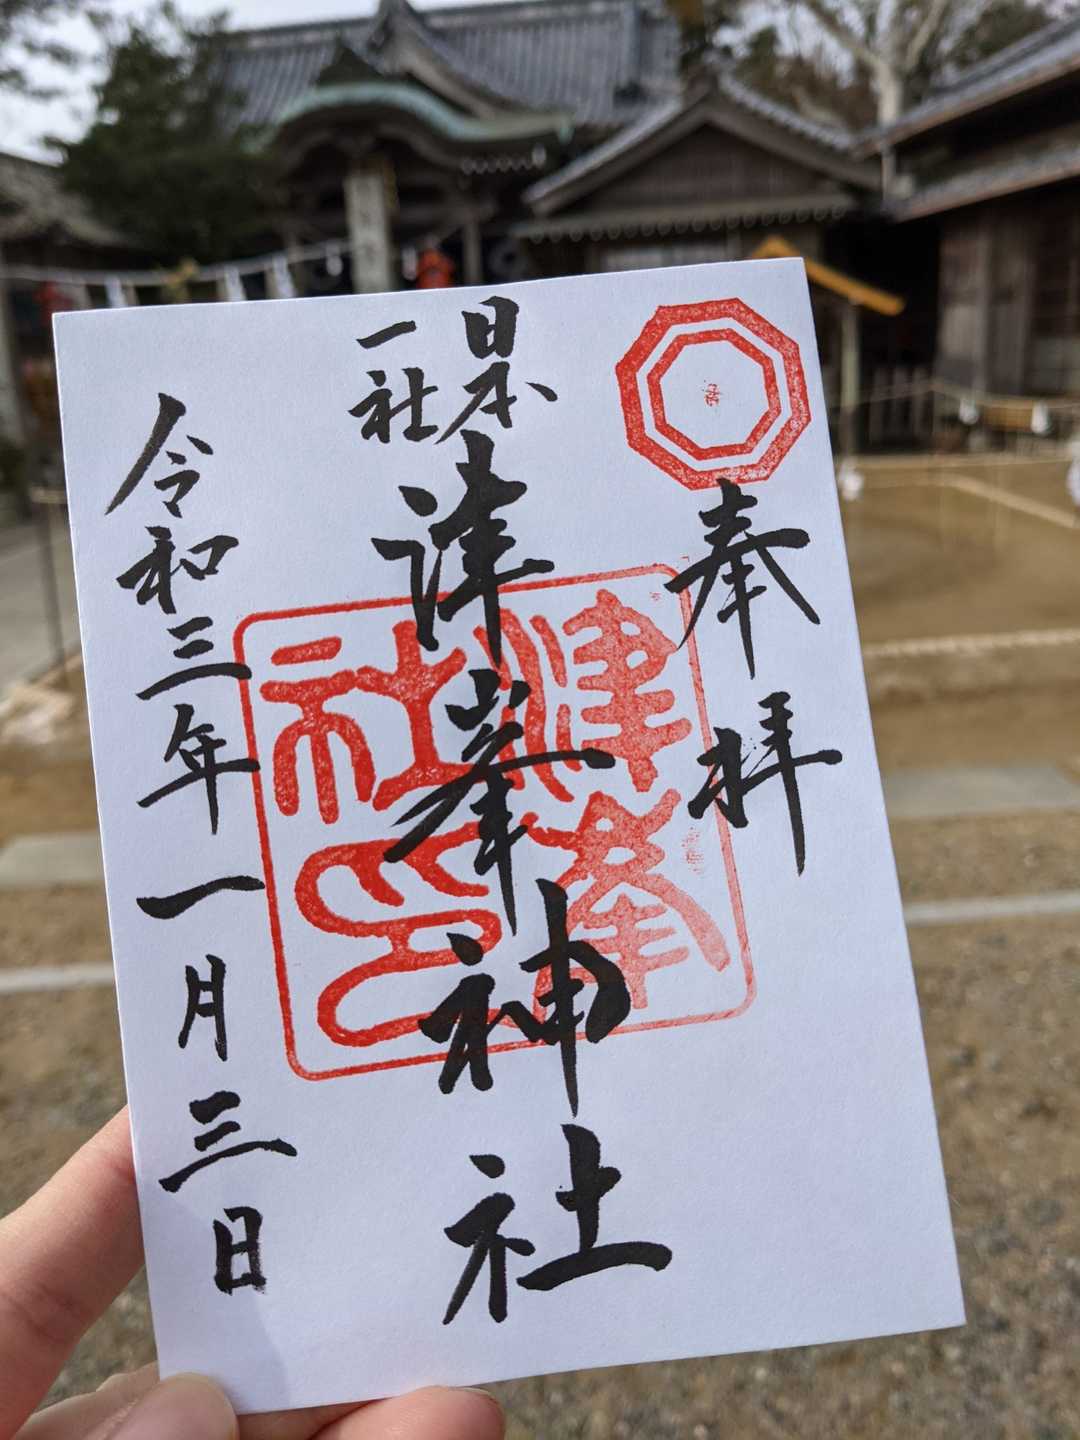 奉拝
日本
一社
津峯神社
令和三年一月三日
津峯
社印